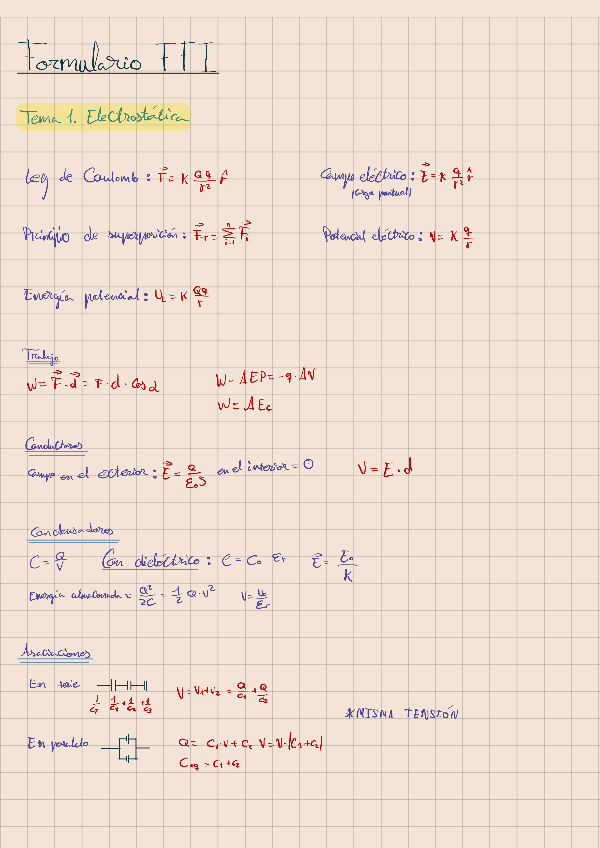 Formulario FFI
Tema 1. Electrostática
Ley de Coulomb: F⃗ = K Qq/r² r̂
Campo eléctrico: E⃗ = K q/r² r̂
(carga puntual)
Principio de superposición: F⃗_T = Σ F⃗ᵢ
Potencial eléctrico: V = K q/r
Energía potencial: U = K Qq/r
Trabajo
W = F⃗ · d⃗ = F · d · cos α
W = ΔEP = -q · ΔV
W = ΔEc
Conductores
Campo en el exterior: E⃗ = Q/ε₀S en el interior = 0
V = E · d
Condensadores
C = Q/V Con dieléctrico: C = C₀ εr E⃗ = E₀/K
Energía almacenada = Q²/2C = 1/2 Q · V² V = V₀/εr
Asociaciones
En serie
V = V₁ + V₂ = Q/C₁ + Q/C₂
1/C_T 1/C₁ + 1/C₂ + 1/C₃
*MISMA TENSIÓN
En paralelo
Q = C₁ · V + C₂ V = V · (C₁ + C₂)
Ceq = C₁ + C₂